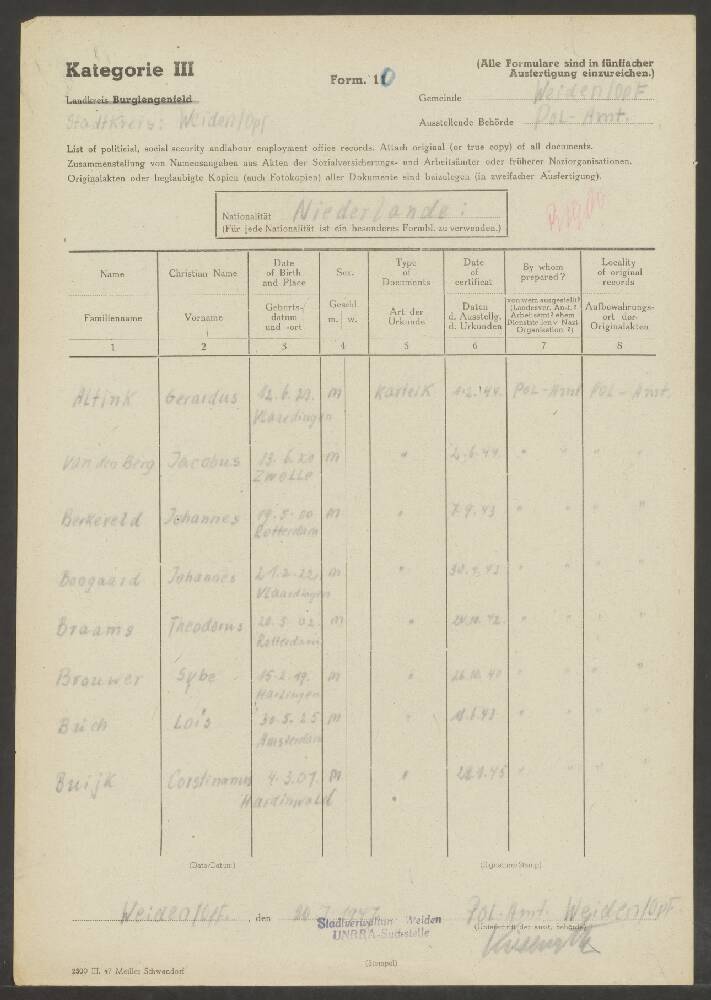 Kategorie III
Form. 10
(Alle Formulare sind in fünffacher
Ausfertigung einzureichen.)
Landkreis Burglengenfeld
Stadtkreis: Weiden/Opf
Gemeinde Weiden/Opf
Ausstellende Behörde Pol- Amt.
List of politicial, social security andlabour employment office records. Attach original (or true copy) of all documents.
Zusammenstellung von Namensangaben aus Akten der Sozialversicherungs- und Arbeitsämter oder früherer Naziorganisationen.
Originalakten oder beglaubigte Kopien (auch Fotokopien) aller Dokumente sind beizulegen (in zweifacher Ausfertigung).
Nationalität Niederlande:
(Für jede Nationalität ist ein besonderes Formbl. zu verwenden.)
Name Christian Name Date of Birth and Place Sex. Type of Documents Date of certificat By whom prepared? Locality of original records
Familienname Vorname Geburts-/ datum und -ort Geschl. m. w. Art der Urkunde Daten d. Ausstellg. d. Urkunden von wem ausgestellt? (Landesver. Anst.? Arbeitsamt? ehem. Nazi Organisation?) Aufbewahrungs- ort der Originalakten
1 2 3 4 5 6 7 8
Altink Gerardus 12.6.21. m Karteik 1.2.44. Pol-Amt Pol-Amt.
Vlaardingen
Van den Berg Jacobus 13.6.20 m " 2.6.44. " " " "
Zwolle
Berkeveld Johannes 19.5.00 m " 7.9.43 " " " "
Rotterdam
Boogaard Johannes 21.2.22. m " 30.4.43 " " " "
Vlaardingen
Braams Theodorus 20.5.02. m " 24.10.42. " " " "
Rotterdam
Brouwer Sybe 15.2.19. m " 26.10.40 " " " "
Harlingen
Buch Lois 30.5.25 m " 18.6.43 " " " "
Amsterdam
Buijk 4.3.01. m " 22.1.45 " " " "
(Date/Datum)
(Signature/Stamp)
Weiden/Opf. , den 20. 1947
Stadtverwaltung Weiden
UNRRA-Suchstelle
Pol-Amt Weiden/Opf
(Unterschrift der ausst. Behörde)
(Stempel)
2500 III. 47 Meiller Schwandorf